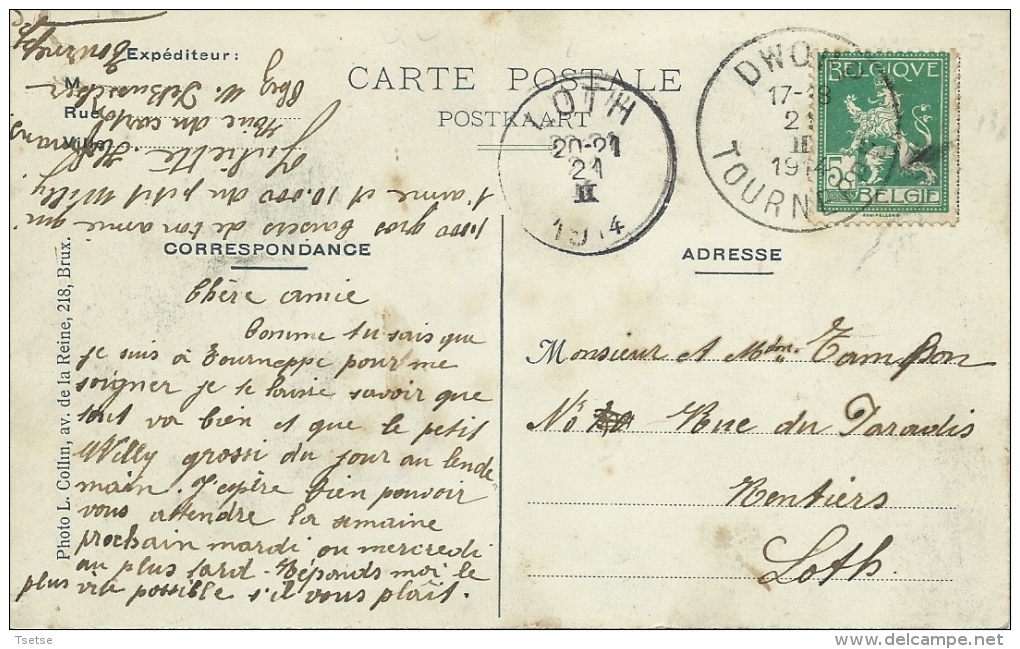 CARTE POSTALE
POSTKAART
Expéditeur:
M
Rue
Ville
Tourneppe
Chez
voie du
Juliette
t'aime et 10.000 du petit Willy
1.000 gros baisers de ton amie qui
CORRESPONDANCE
Chère amie
Comme tu sais que
je suis à Tourneppe pour me
soigner je te laisse savoir que
tout va bien et que le petit
Willy grossi du jour au lende
main. J'espère bien pouvoir
vous attendre la semaine
prochain mardi ou mercredi
au plus tard. Réponds moi le
plus vite possible s'il vous plaît.
Photo L. Collin, av. de la Reine, 218, Brux.
LOTH
20-21
21
II
1914
DWO
17-18
2
II
1914
TOURNEPPE
BELGIQUE
5
BELGIË
ADRESSE
Monsieur et Mme Tampon
No Rue du Paradis
Rentiers
Loth
Tsetse
delcampe.net